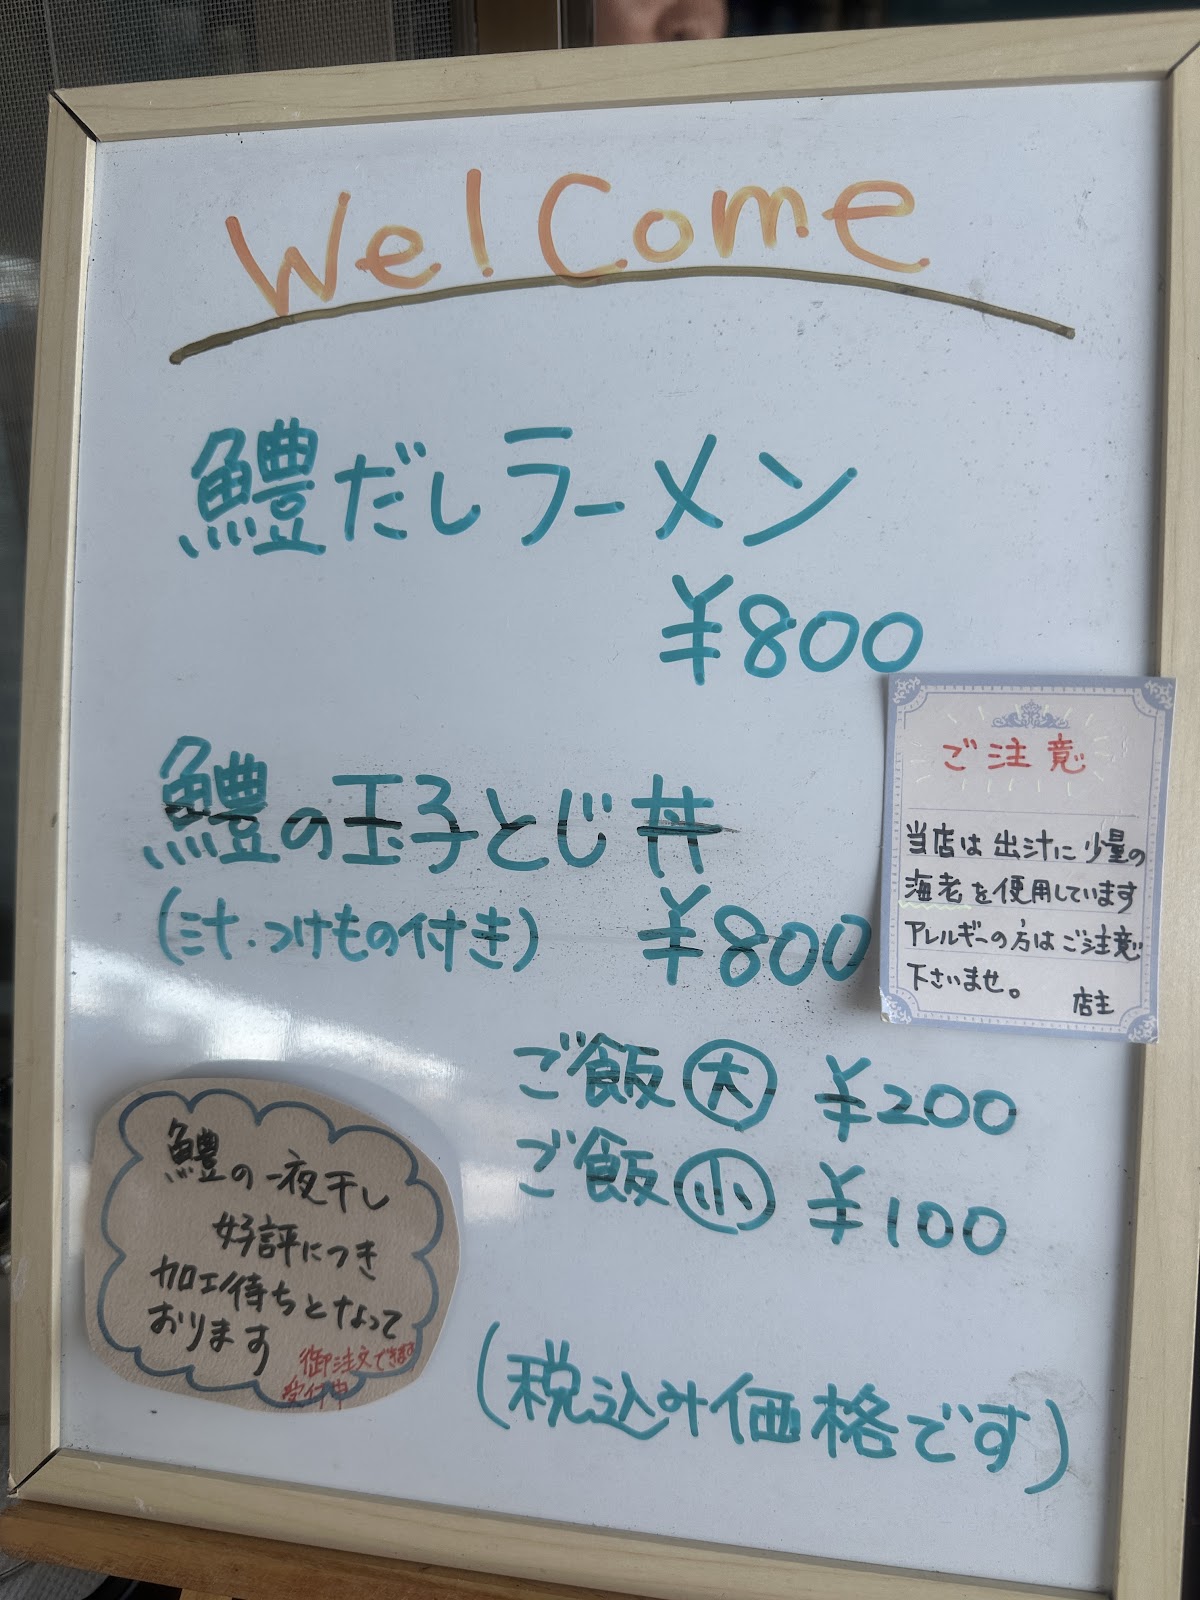 Welcome
鱧だしラーメン
¥800
鱧の玉子とじ丼
(汁・つけもの付き) ¥800
ご飯㊅ ¥200
ご飯㊋ ¥100
(税込み価格です)
ご注意
当店は出汁に少量の
海老を使用しています
アレルギーの方はご注意
下さいませ。
店主
鱧の一夜干し
好評につき
加工待ちとなって
おります
御注文できます
受付中